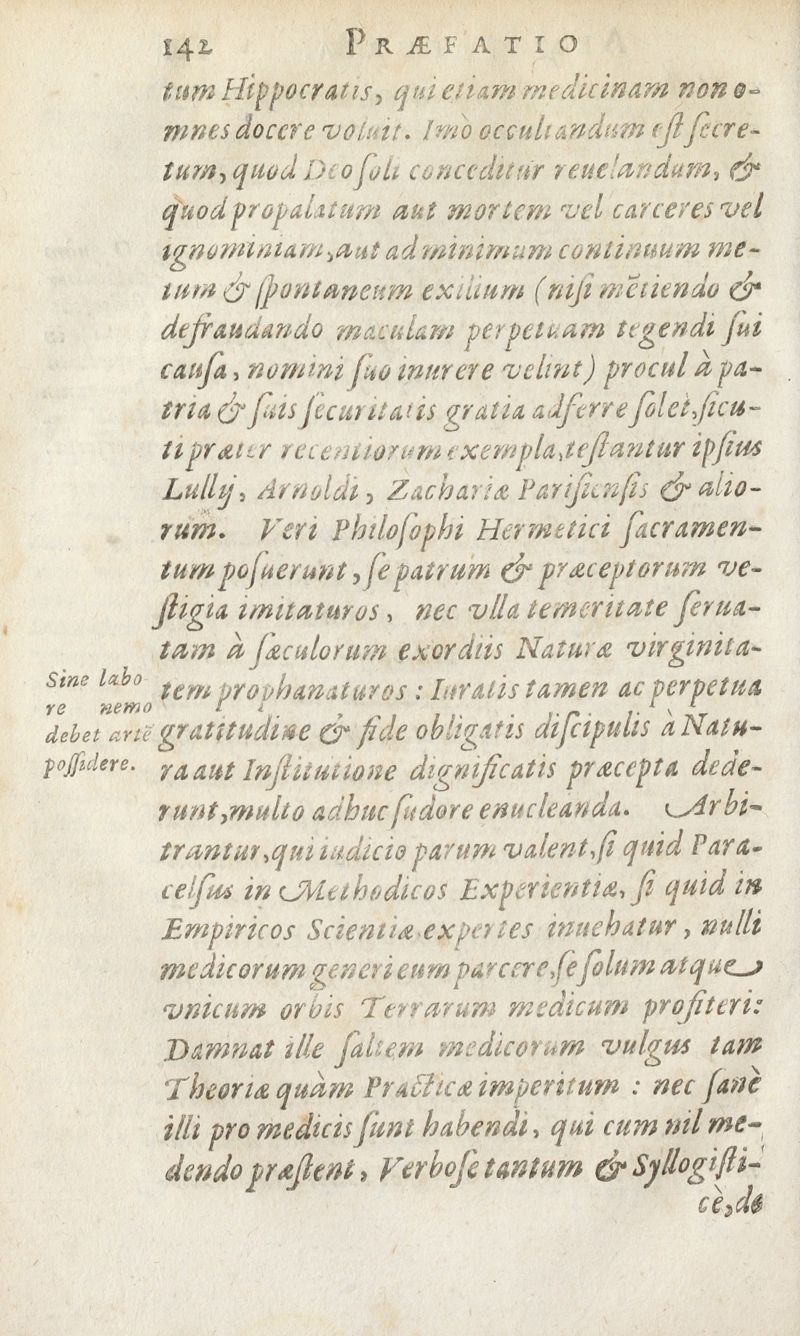 142 PRÆFATIO
tum Hippocratis, qui etiam medicinam non o-
mnes docere voluit. Imò occultandum est secre-
tum, quod Deo soli conceditur reuelandum, &
quod propalatum aut mortem vel carceres vel
ignominiam, aut ad minimum continuum me-
tum & spontaneum exilium (nisi mētiendo &
defraudando maculam perpetuam tegendi sui
causa, nomini suo inurere velint) procul à pa-
tria & suis securitatis gratia adferre solet, sicu-
ti præter recentiorum exempla, testantur ipsius
Lullij, Arnoldi, Zachariæ Parisiensis & alio-
rum. Veri Philosophi Hermetici sacramen-
tum posuerunt, se patrum & præceptorum ve-
stigia imitaturos, nec vlla temeritate serua-
tam à sæculorum exordiis Naturæ virginita-
tem prophanaturos : Iuratis tamen ac perpetua
gratitudine & fide obligatis discipulis à Natu-
ra aut Institutione dignificatis præcepta dede-
runt, multo adhuc sudore enucleanda. Arbi-
trantur, qui iudicio parum valent, si quid Para-
celsus in Methodicos Experientiæ, si quid in
Empiricos Scientiæ expertes inuehatur, nulli
medicorum generi eum parcere, se solum atque
vnicum orbis Terrarum medicum profiteri:
Damnat ille saltem medicorum vulgus tam
Theoriæ quàm Practicæ imperitum : nec sanè
illi pro medicis sunt habendi, qui cum nil me-
dendo præstent, Verbose tantum & Syllogisti-
cè, de
Sine labo
re nemo
debet artē
possidere.